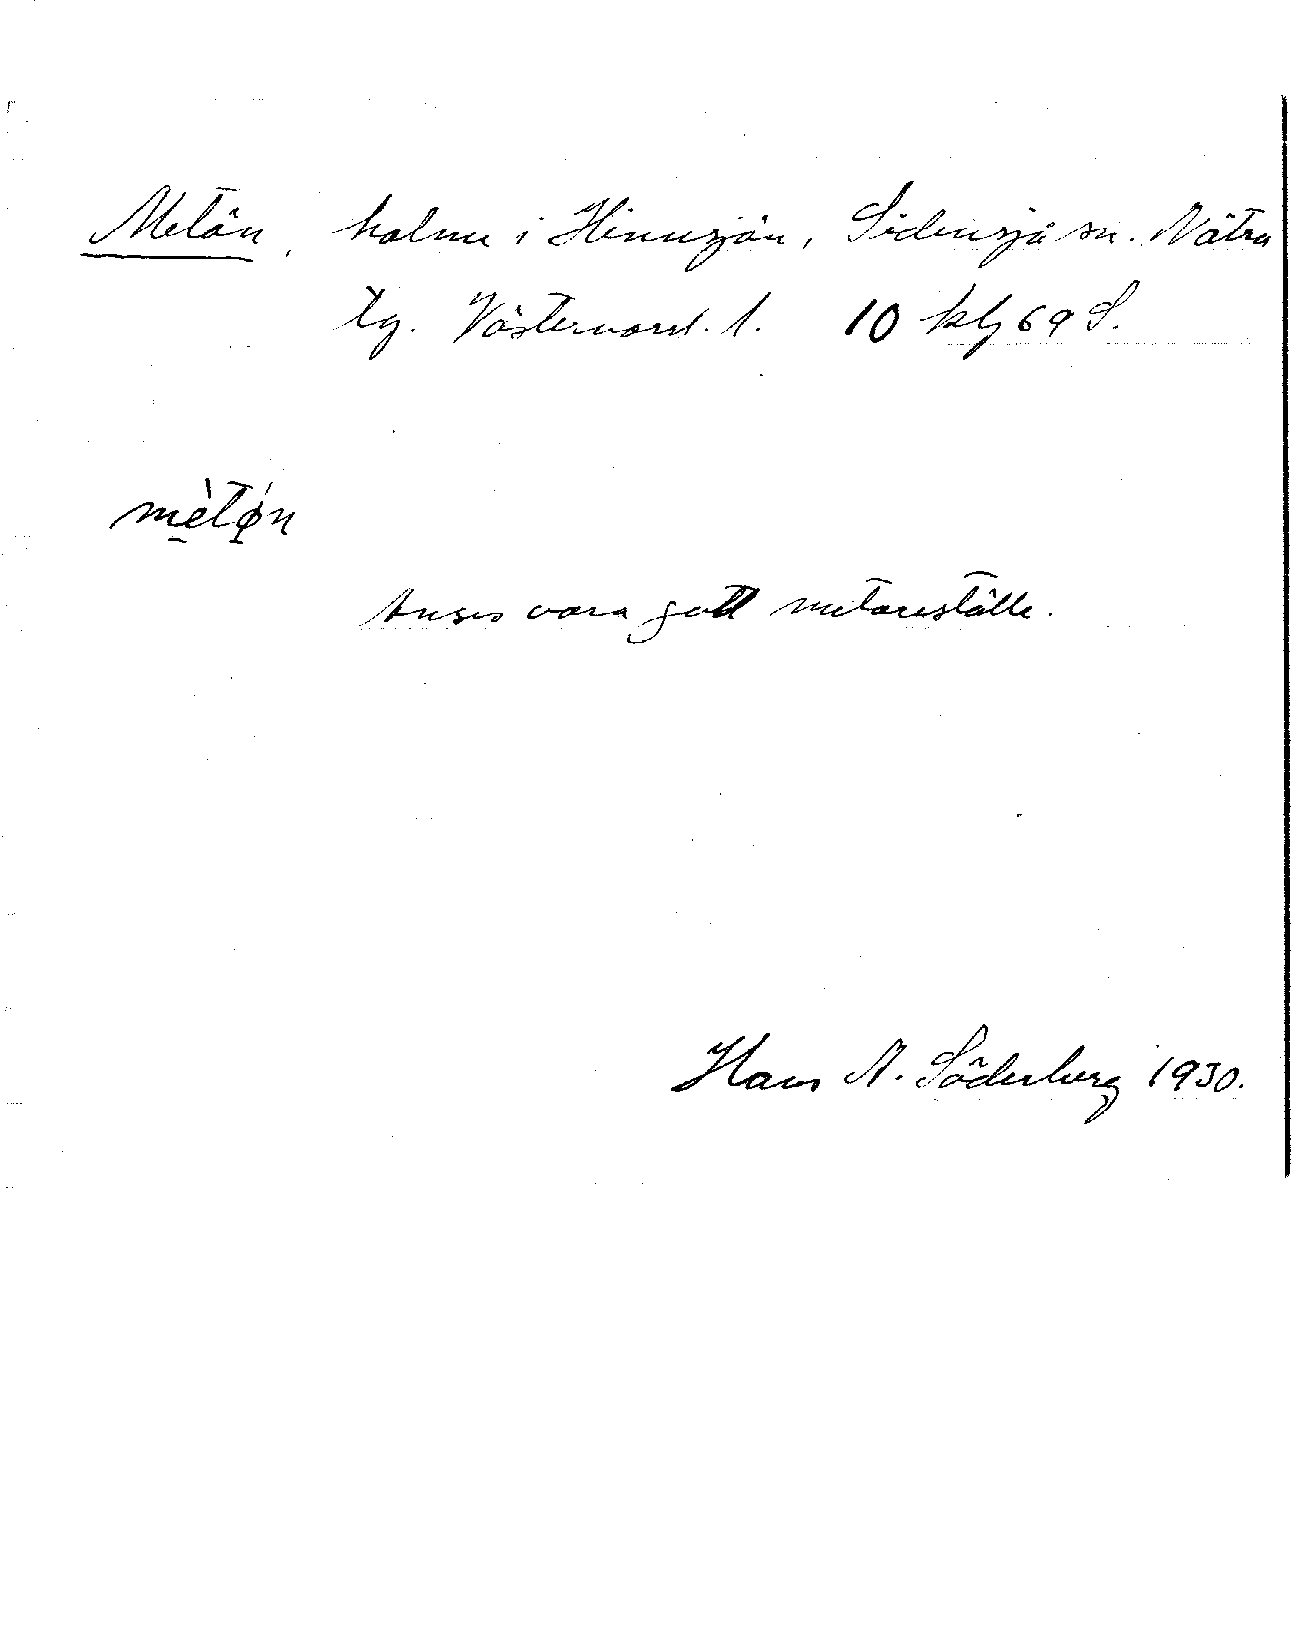 Metön, holme i Hinnsjön, Sidensjö sn. Nätra
tg. Västernorrl. l. 10 kbl 69 S.
mètǿn
Anses vara gott metareställe.
Hans N. Söderberg 1930.